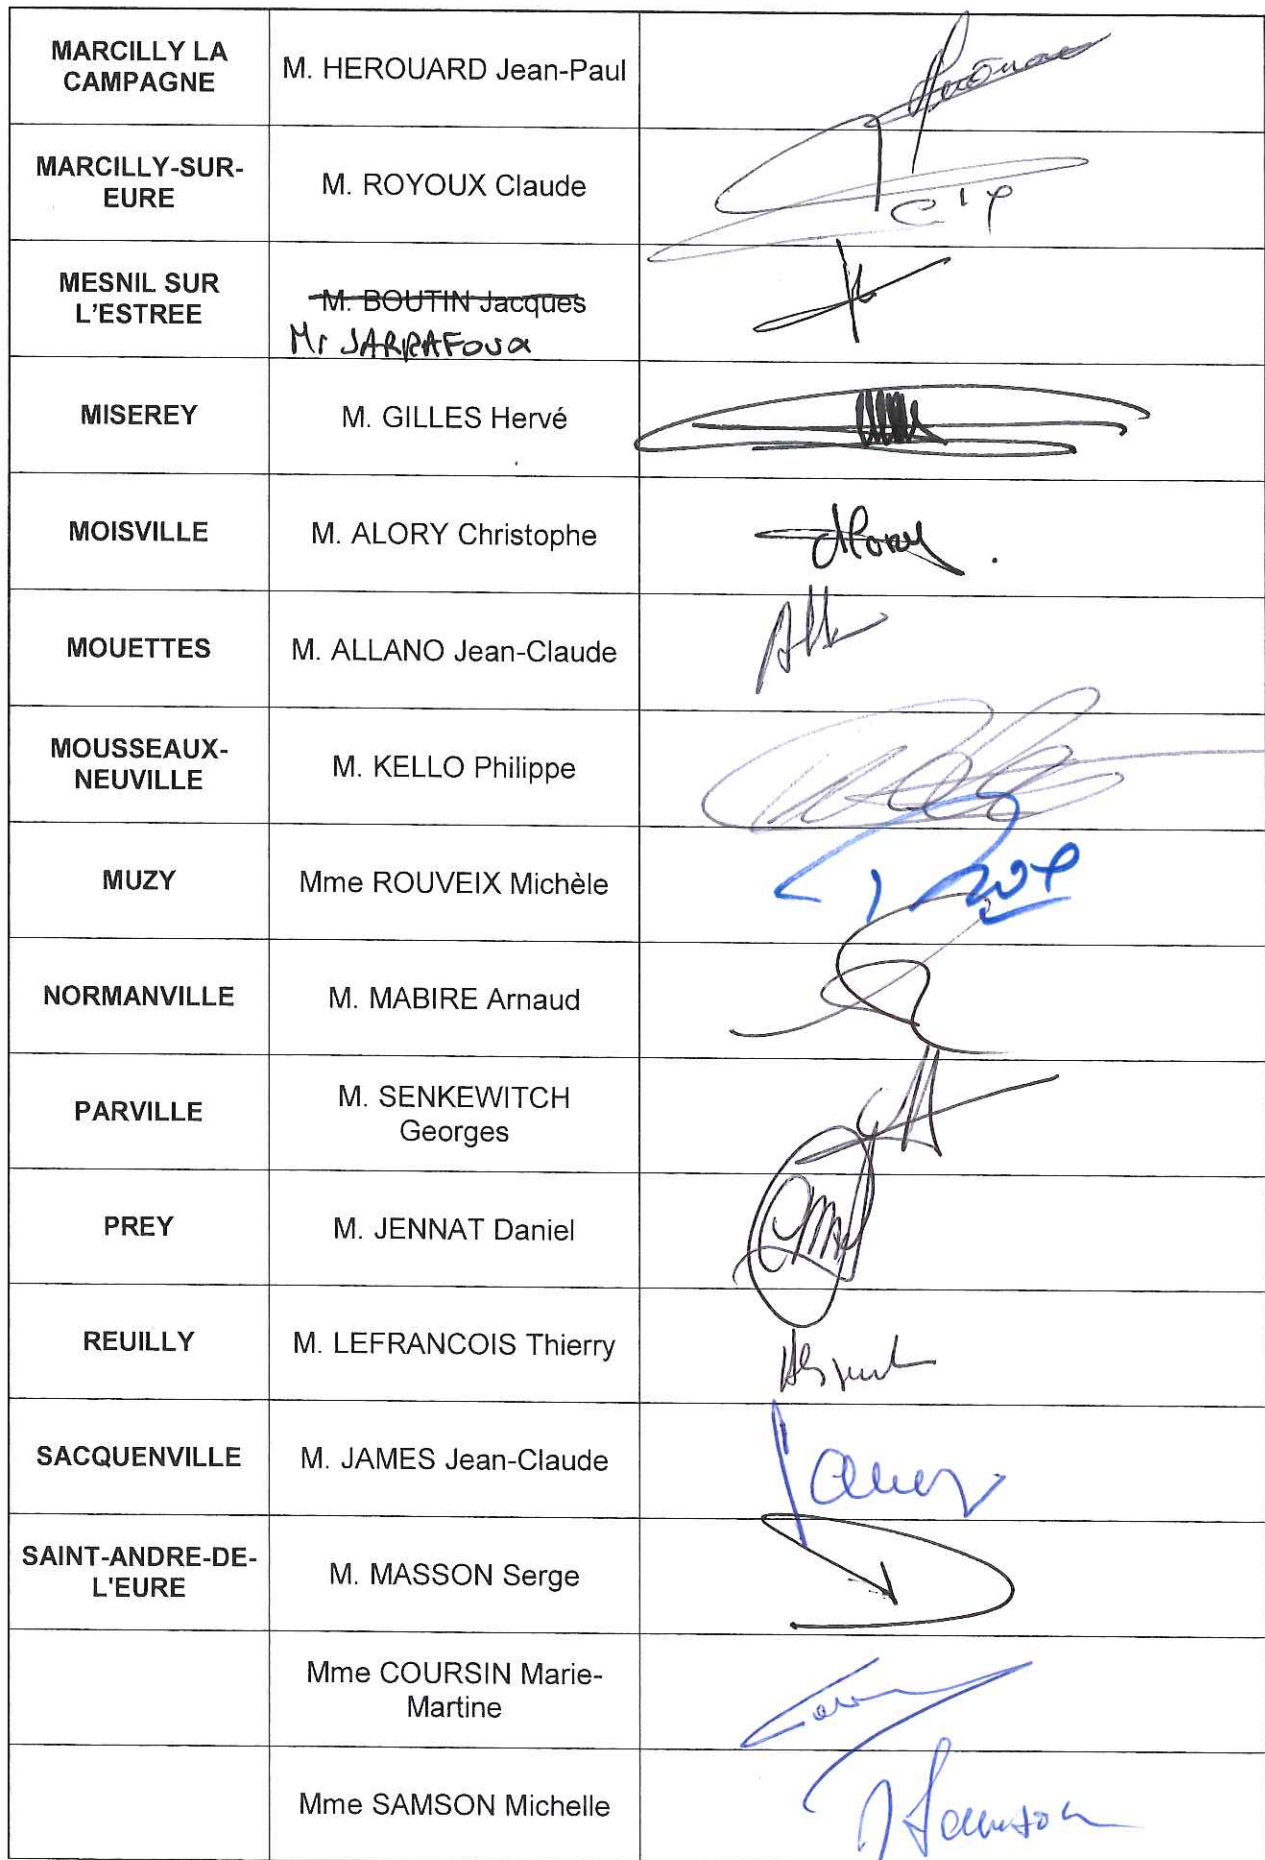 MARCILLY LA
CAMPAGNE
M. HEROUARD Jean-Paul
MARCILLY-SUR-
EURE
M. ROYOUX Claude
MESNIL SUR
L'ESTREE
M. BOUTIN Jacques
Mr JARRAFOUX
MISEREY
M. GILLES Hervé
MOISVILLE
M. ALORY Christophe
Alory
MOUETTES
M. ALLANO Jean-Claude
MOUSSEAUX-
NEUVILLE
M. KELLO Philippe
MUZY
Mme ROUVEIX Michèle
NORMANVILLE
M. MABIRE Arnaud
PARVILLE
M. SENKEWITCH
Georges
PREY
M. JENNAT Daniel
REUILLY
M. LEFRANCOIS Thierry
SACQUENVILLE
M. JAMES Jean-Claude
SAINT-ANDRE-DE-
L'EURE
M. MASSON Serge
Mme COURSIN Marie-
Martine
Mme SAMSON Michelle
Samson